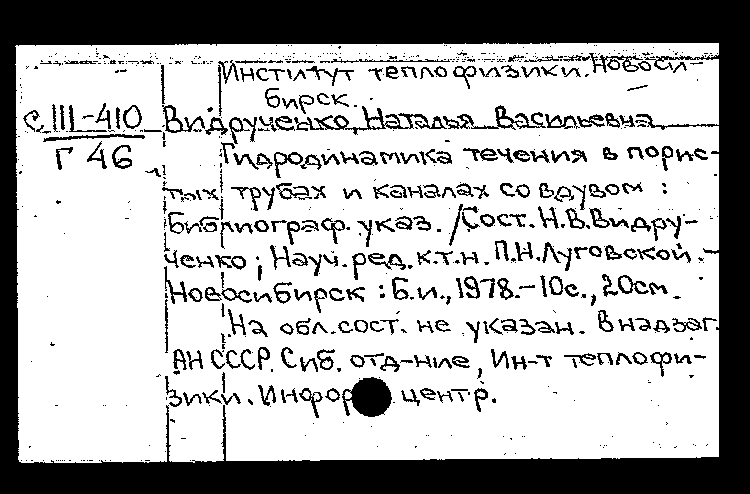 Институт теплофизики. Новоси-
бирск.
С III-410
Г 46
Видрученко, Наталья Васильевна.
Гидродинамика течения в порис-
тых трубах и каналах со вдувом :
Библиограф. указ. /Сост. Н.В.Видру-
ченко ; Науч. ред. к.т.н. П.Н.Луговской. -
Новосибирск : Б.и., 1978. - 10с., 20см.
На обл. сост. не указан. В надзаг.
АН СССР. Сиб. отд-ние, Ин-т теплофи-
зики. центр.